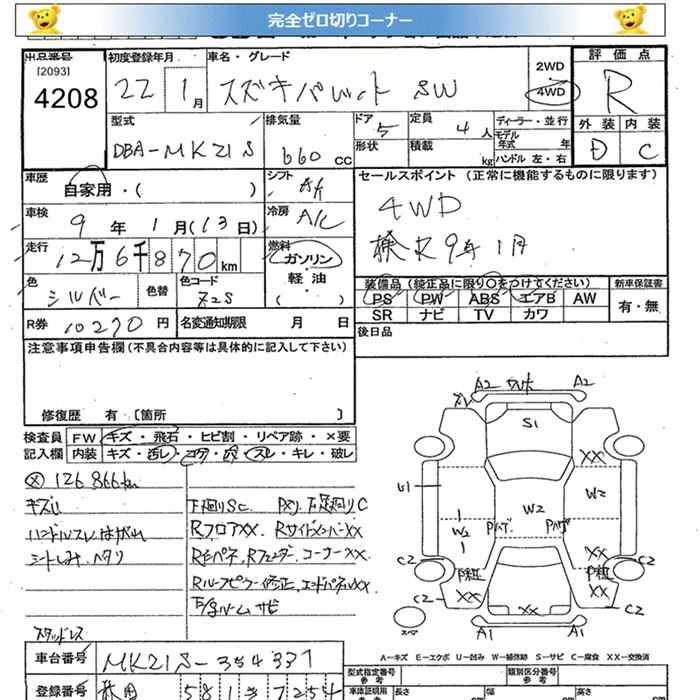 完全ゼロ切りコーナー
出品番号 初度登録年月 車名・グレード 評価点
[2093]
4208 22 1月 スズキパレット SW 2WD 4WD R
外装 内装
型式 排気量 ドア 5 定員 4人 ディーラー・並行
モデル年式 年
DBA-MK21S 660cc 形状 積載 kg ハンドル 左・右 D C
車歴 シフト セールスポイント (正常に機能するものに限ります)
自家用・( ) AT
4WD
車検 冷房
9年 1月(13日) A/C 検R9年1月
走行 燃料
12万6千870km ガソリン
軽・油
( )
色 色替 色コード 装備品 (純正品に限り〇をつけてください) 新車保証書
シルバー Z2S PS PW ABS エアB AW 有・無
SR ナビ TV カワ
R券 10270円 名変通知期限 月 日 後日品
注意事項申告欄(不具合内容等は具体的に記入して下さい)
修復歴 有 〔箇所 〕
検査員 FW キズ・飛石・ヒビ割・リペア跡・×要
記入欄 内装 キズ・汚レ・コゲ・穴・スレ・キレ・破レ
126,866km
キズU
ハンドルスレ、はがれ
シートしみ、ヘタリ
下廻りSC
RフロアXX、RサイドメンバーXX
コーナーXX
エンドパネルXX
サビ
スタッドレス
A2 A2
A1 S1
XX
U1 W2 W2
W2 Pハゲ Pハゲ
XX
C2 C2
XX XX
C2 XX C2
A1 A1
スペア
A-キズ E-エクボ U-凹み W-補修跡 S-サビ C-腐食 XX-交換済
車台番号 MK21S-354337
型式指定番号 類別区分番号
登録番号 581 7254
車庫証明用参考 長さ cm 幅 cm 高さ cm